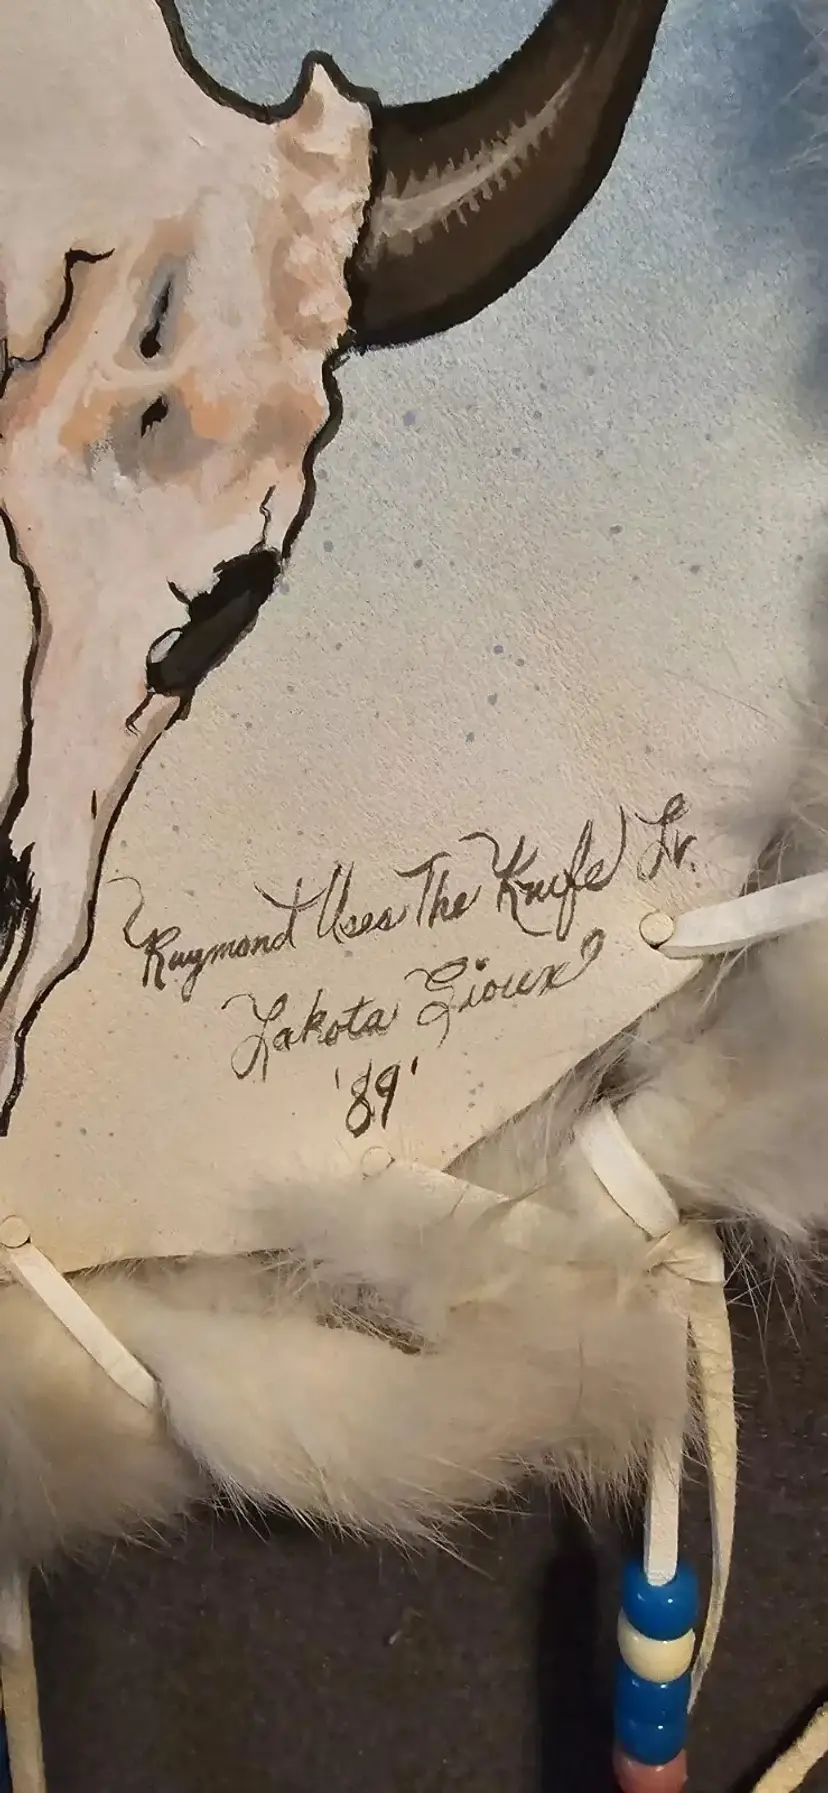 Raymond Uses The Knife Jr.
Lakota Sioux
'89'